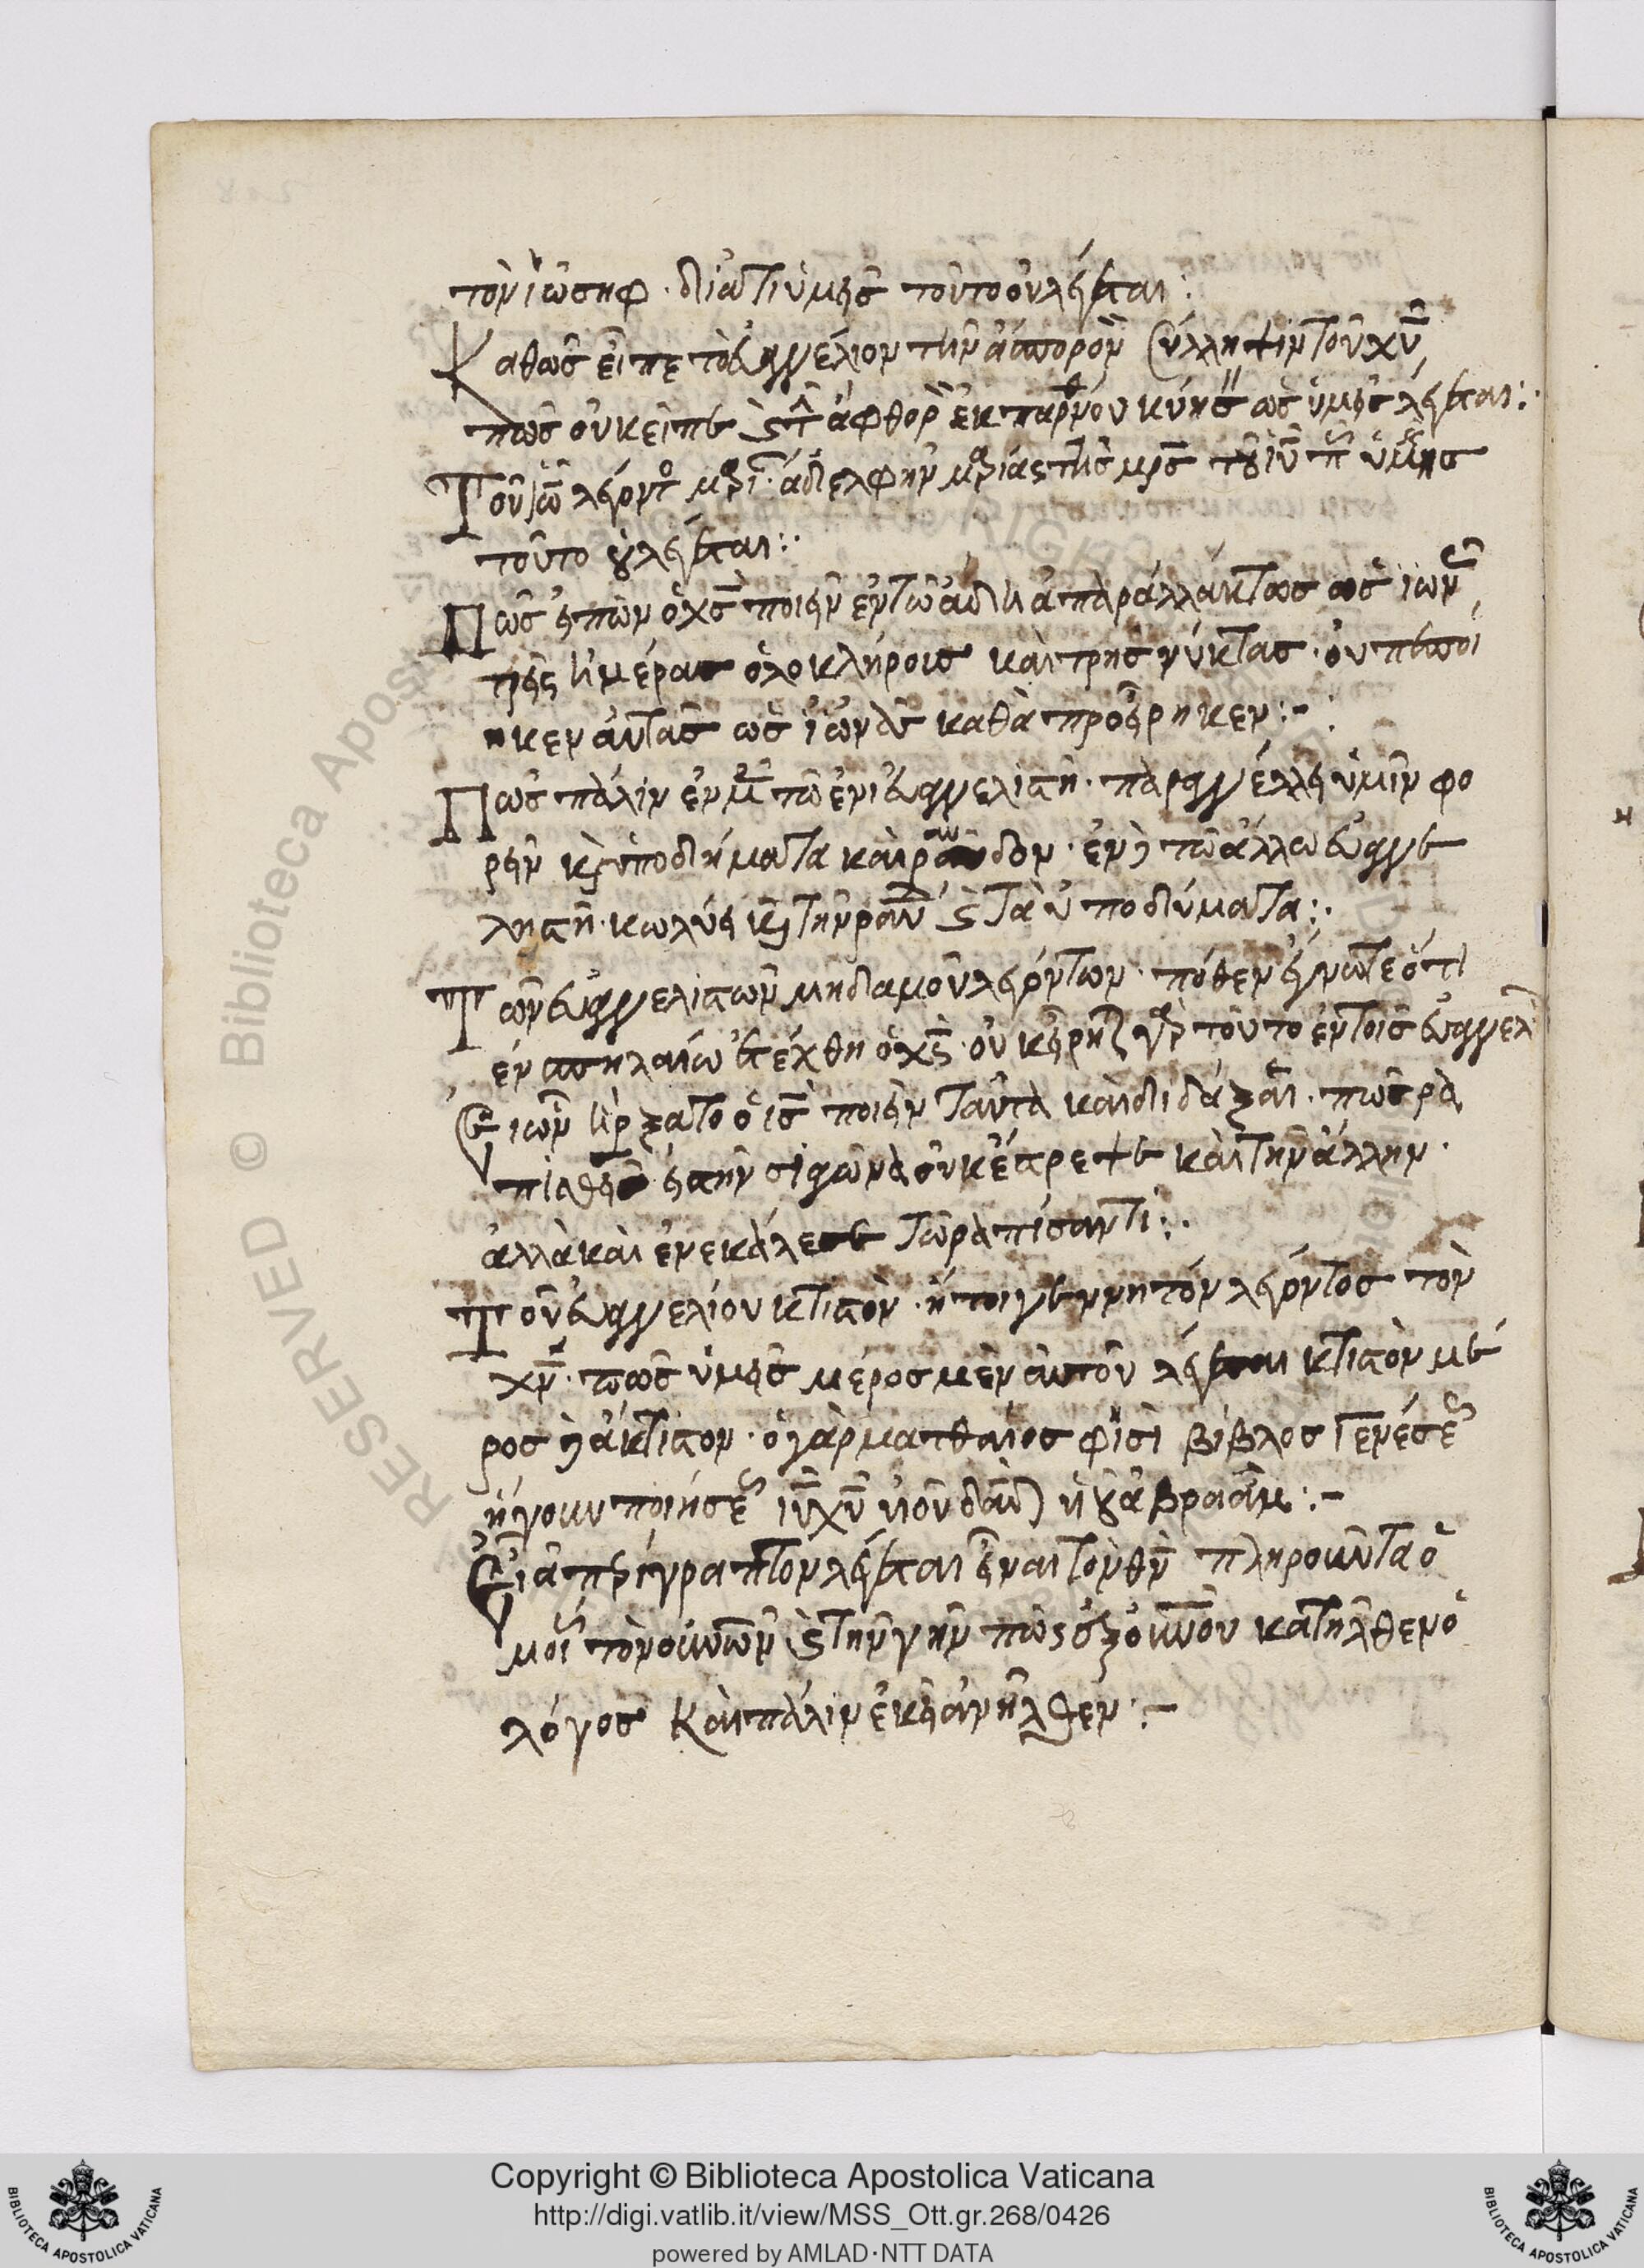 τὸν ἰωσηφ · διατί ὑμεῖς τοῦτο οὐ λέγεται :
Καθὼς εἶπε τὸ εὐαγγέλιον τὴν ἄσπορον σύλληψιν τοῦ χυ
πῶς οὐκ εἶπε καὶ τὴν ἄφθορον ἐκ παρθένου κύησ ὡς ὑμεῖς λέγεται :·
Τοῦ ιω λέγοντο μαρίαν ἀδελφὴν μαρίας τῆς μρς του ιυ ὑμεῖς
τοῦτο οὐ λέγεται :·
Πῶς εἰπὼν ὁ χς ποιεῖν ἐν τῶ ἅδη ἀπαράλλάκτως ὡς ἰων
τρεῖς ἡμέρας ὁλοκλήροις καὶ τρεῖς νύκτας · οὐ πεποί
ηκεν αὐτὰς ὡς ἰωνᾶς καθὰ προείρηκεν :-
Πῶς πάλιν ἐν μ τῶ ἐνὶ εὐαγγελιστῆ · παραγγέλλει ὑμῖν φο
ρεῖν καὶ ὑποδήματα καὶ ράβδον · ἐν δὲ τῶ ἄλλω εὐαγγε
λιστῆ · κωλύει καὶ τὴν ραβδ καὶ τὰ ὑποδύματα :·
Τῶν εὐαγγελιστῶν μηδαμοῦ λεγόντων · πόθεν ἔγνωτε ὅτι
ἐν σπηλαίω ἐτέχθη ὁ χς · οὐκ εἴρητ γὰρ τοῦτο ἐν τοῖς εὐαγγελ
Εἰ ὧν ἤρξατο ὁ ις ποιεῖν ταῦτα καὶ διδάξαι · πῶς ρα
πισθεὶς εἰς τὴν σιαγῶνα οὐκ ἔστρεψε καὶ τὴν ἄλλην ·
ἀλλὰ καὶ ἐνεκάλεσε τῶ ραπίσαντι :·
Τοῦ εὐαγγελίου κτιστὸν · ἤτοι γεννητόν λέγοντος τὸν
χν · πῶς ὑμεῖς μέρος μὲν αὐτοῦ λέγεται κτιστὸν μέ
ρος δὲ ἄκτιστον · ὁ γὰρ ματθαίος φισὶ βίβλος γενέσε
ἤγουν ποιήσε ιυ χυ υἱοῦ δαδ υἱοῦ ἀβραάμ :-
Εἰ ἀπερίγραπτον λέγεται εἶναι τὸν θν πληροῦντα ὁ
μοῦ τὸν οὐνον καὶ τὴν γῆν πῶς ἐξ οὐνου κατῆλθεν ὁ
λόγος καὶ πάλιν ἐκεῖ ἀνῆλθεν :-
Copyright © Biblioteca Apostolica Vaticana
http://digi.vatlib.it/view/MSS_Ott.gr.268/0426
powered by AMLAD·NTT DATA